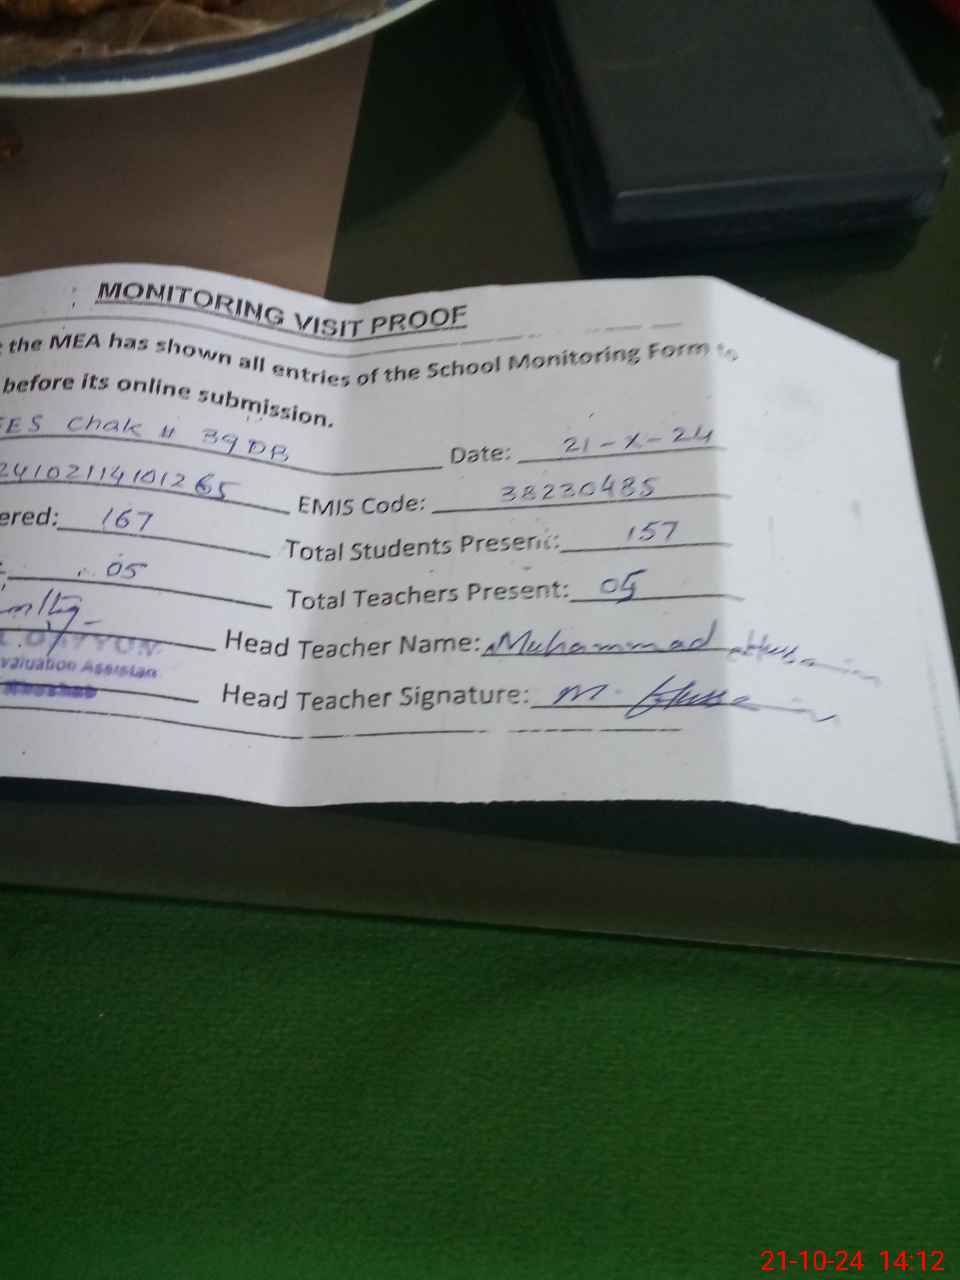 MONITORING VISIT PROOF
the MEA has shown all entries of the School Monitoring Form to
before its online submission.
ES Chak # 39 DB Date: 21-X-24
241021141012 65 EMIS Code: 38230485
ered: 167 Total Students Present: 157
05 Total Teachers Present: 05
Head Teacher Name: Muhammad Hussain
valuation Assistan
Head Teacher Signature: M. Hussain
21-10-24 14:12